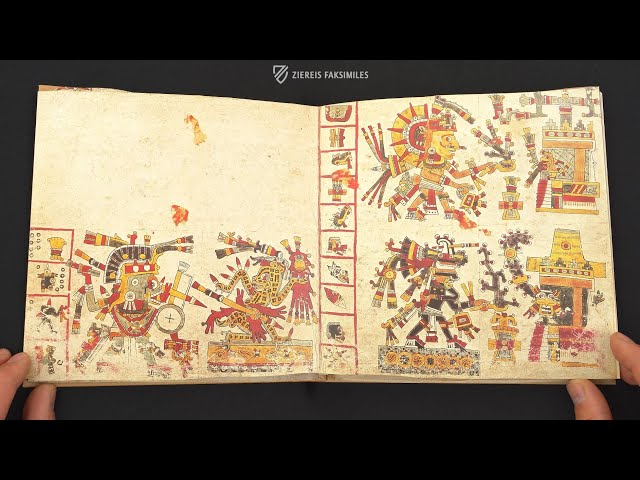 ZIEREIS FAKSIMILES